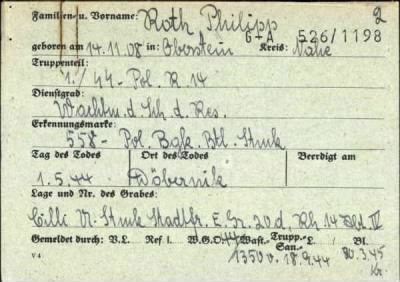 Familien- u. Vorname: Roth Philipp 2
G-A 526/1198
geboren am 14.11.08 in: Oberstein Kreis: Nahe
Truppenteil:
1./44-Pol. R. 14
Dienstgrad:
Wachtm. d. Sch. d. Res.
Erkennungsmarke:
558- Pol. Batl.
Tag des Todes Ort des Todes Beerdigt am
1.5.44 Döbernik
Lage und Nr. des Grabes:
Cilli Stadtfr. E. Gr. 20 d, Rh 14 Abt IV
Gemeldet durch: V.L. Ref L. W.G.O. 44 Wast. Trupp. L. Bl.
San.
1350 v. 18.9.44 30.3.45
V 4 Kr.